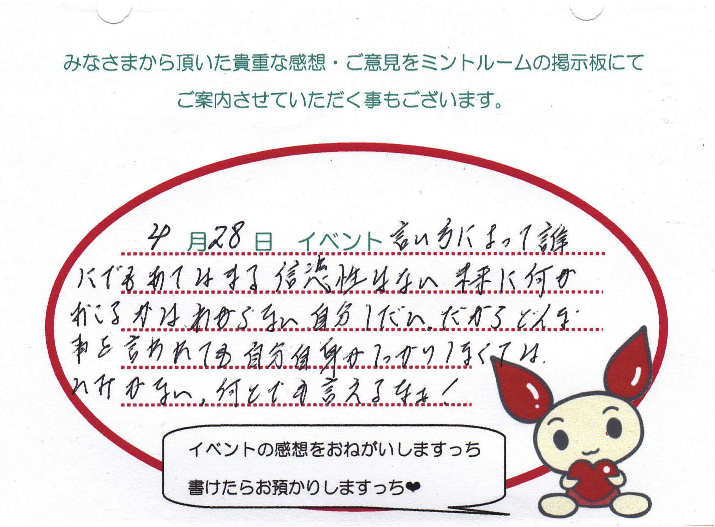 みなさまから頂いた貴重な感想・ご意見をミントルームの掲示板にて
ご案内させていただく事もございます。
4月28日 イベント 言い方によって誰
にでもあてはまる 信憑性はない 未来に何が
おこるかはわからない 自分しだい。だからどんな
事を言われても自分自身がしっかりしなくては
いみがない。何とでも言えるなぁ!
イベントの感想をおねがいしますっち
書けたらお預かりしますっち❤